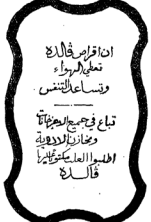 ان اقراص ڤالده
تعطي الهواء
وتساعد التنفس
تباع في جميع الاجزخانات
ومخازن الادوية
اطلبوا العلب مكتوب عليها
ڤالده